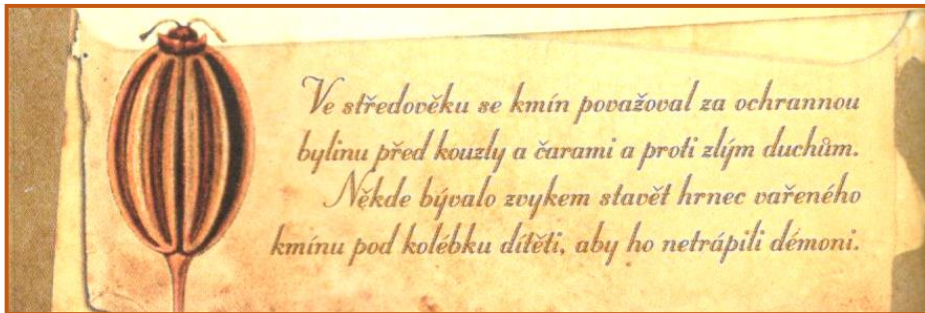 Ve středověku se kmín považoval za ochrannou
bylinu před kouzly a čarami a proti zlým duchům.
Někde bývalo zvykem stavět hrnec vařeného
kmínu pod kolébku dítěti, aby ho netrápili démoni.